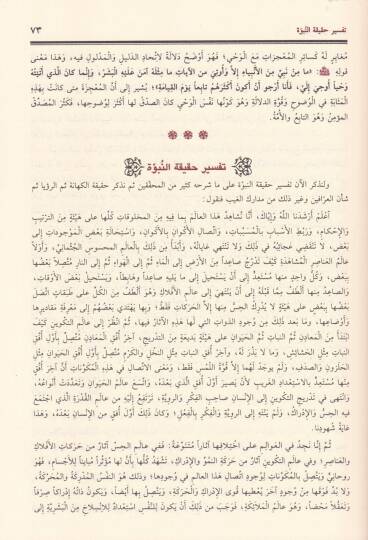 تفسير حقيقة النُّبوَّة ٧٣
مُغايِرٍ لَهُ كَسائِرِ المُعْجِزاتِ مَعَ الوَحْيِ؛ فَهُوَ أَوْضَحُ دَلالَةً لاتِّحادِ الدَّليلِ وَالمَدْلولِ فيهِ، وَهَذا مَعْنى
قولِهِ ﷺ: «ما مِنْ نَبيٍّ مِنَ الأَنْبِياءِ إلاَّ وَأُوتِيَ مِنَ الآياتِ ما مِثْلُهُ آمَنَ عَلَيْهِ البَشَرُ، وَإنَّما كانَ الَّذي أُتيتُهُ
وَحْياً أُوحِيَ إلَيَّ، فَأَنا أَرْجو أَنْ أَكونَ أَكْثَرَهُمْ تابِعاً يَوْمَ القِيامَةِ» يُشيرُ إلى أَنَّ المُعْجِزَةَ مَتى كانَتْ بِهَذِهِ
المَثابَةِ في الوُضوحِ وَقُوَّةِ الدَّلالَةِ وَهُوَ كَوْنُها نَفْسَ الوَحْيِ كانَ الصِّدْقُ لَها أَكْثَرَ لِوُضوحِها، فَكَثُرَ المُصَدِّقُ
المؤمِنُ وَهُوَ التابِعُ وَالأُمَّةُ.
تفسير حقيقة النُّبوَّة
ولنذكر الآن تفسير حقيقة النبوّة على ما شرحه كثير من المحقّقين ثم نذكر حقيقة الكهانة ثم الرؤيا ثم
شأن العرّافين وغير ذلك من مدارك الغيب فنقول:
اِعْلَمْ أَرْشَدَنا اللَّهُ وَإيَّاكَ، أَنَّا نُشاهِدُ هَذا العالَمَ بِما فيهِ مِنَ المَخْلوقاتِ كُلِّها عَلى هَيْئَةٍ مِنَ التَّرْتيبِ
وَالإحْكامِ، وَرَبْطِ الأَسْبابِ بِالمُسَبَّباتِ، وَاتِّصالِ الأَكْوانِ بِالأَكْوانِ، وَاسْتِحالَةِ بَعْضِ المَوْجوداتِ إلى
بَعْضٍ، لا تَنْقَضي عَجائِبُهُ في ذَلِكَ وَلا تَنْتَهي غاياتُهُ، وَأَبْدَأُ مِنْ ذَلِكَ بِالعالَمِ المَحْسوسِ الجُثْمانيِّ، وَأَوَّلاً
عالَمُ العَناصِرِ المُشاهَدَةِ كَيْفَ تَدَرَّجَ صاعِداً مِنَ الأَرْضِ إلى الماءِ ثُمَّ إلى الهَواءِ ثُمَّ إلى النارِ مُتَّصِلاً بَعْضُها
بِبَعْضٍ، وَكُلُّ واحِدٍ مِنْها مُسْتَعِدٌّ إلى أَنْ يَسْتَحيلَ إلى ما يَليهِ صاعِداً وَهابِطاً، وَيَسْتَحيلُ بَعْضَ الأَوْقاتِ،
وَالصاعِدُ مِنْها أَلْطَفُ مِمَّا قَبْلَهُ إلى أَنْ يَنْتَهِيَ إلى عالَمِ الأَفْلاكِ وَهُوَ أَلْطَفُ مِنَ الكُلِّ عَلى طَبَقاتٍ اتَّصَلَ
بَعْضُها بِبَعْضٍ عَلى هَيْئَةٍ لا يُدْرِكُ الحِسُّ مِنْها إلاَّ الحَرَكاتِ فَقَطْ؛ وَبِها يَهْتَدي بَعْضُهُمْ إلى مَعْرِفَةِ مَقاديرِها
وَأَوْضاعِها، وَما بَعْدَ ذَلِكَ مِنْ وُجودِ الذَّواتِ التي لَها هَذِهِ الآثارُ فيها، ثُمَّ انْظُرْ إلى عالَمِ التكْوينِ كَيْفَ
ابْتَدَأَ مِنَ المَعادِنِ ثُمَّ النباتِ ثُمَّ الحَيَوانِ عَلى هَيْئَةٍ بَديعَةٍ مِنَ التدْريجِ، آخِرُ أُفُقِ المَعادِنِ مُتَّصِلٌ بِأَوَّلِ أُفُقِ
النباتِ مِثْلُ الحَشائِشِ، وَما لا بَذْرَ لَهُ، وَآخِرُ أُفُقِ النباتِ مِثْلُ النخْلِ وَالكَرْمِ مُتَّصِلٌ بِأَوَّلِ أُفُقِ الحَيَوانِ مِثْلُ
الحَلَزونِ وَالصدَفِ، وَلَمْ يوجَدْ لَهُما إلاَّ قُوَّةُ اللَّمْسِ فَقَطْ، وَمَعْنى الاتِّصالِ في هَذِهِ المُكَوَّناتِ أَنَّ آخِرَ أُفُقٍ
مِنْها مُسْتَعِدٌّ بِالاسْتِعْدادِ الغَريبِ لأَنْ يَصيرَ أَوَّلَ أُفُقِ الَّذي بَعْدَهُ، وَاتَّسَعَ عالَمُ الحَيَوانِ وَتَعَدَّدَتْ أَنْواعُهُ،
وَانْتَهى في تَدْريجِ التكْوينِ إلى الإنْسانِ صاحِبِ الفِكْرِ وَالرويَّةِ، تَرْتَفِعُ إلَيْهِ مِنْ عالَمِ القُدْرَةِ الَّذي اجْتَمَعَ
فيهِ الحِسُّ وَالإدْراكُ، وَلَمْ يَنْتَهِ إلى الرويَّةِ وَالفِكْرِ بِالفِعْلِ؛ وَكانَ ذَلِكَ أَوَّلَ أُفُقٍ مِنَ الإنْسانِ بَعْدَهُ، وَهَذا
غايَةُ شُهودِنا.
ثُمَّ إنَّا نَجِدُ في العَوالِمِ عَلى اخْتِلافِها آثاراً مُتَنَوِّعَةً: فَفي عالَمِ الحِسِّ آثارٌ مِنْ حَرَكاتِ الأَفْلاكِ
وَالعَناصِرِ؛ وَفي عالَمِ التكْوينِ آثارٌ مِنْ حَرَكَةِ النمُوِّ وَالإدْراكِ، تَشْهَدُ كُلُّها بِأَنَّ لَها مُؤَثِّراً مُبايِناً لِلأَجْسامِ، فَهُوَ
روحانيٌّ وَيَتَّصِلُ بِالمُكَوَّناتِ لِوُجودِ اتِّصالِ هَذا العالَمِ في وُجودِها؛ وَذَلِكَ هُوَ النفْسُ المُدْرِكَةُ وَالمُحَرِّكَةُ،
وَلا بُدَّ فَوْقَها مِنْ وُجودٍ آخَرَ يُعْطيها قُوى الإدْراكِ وَالحَرَكَةِ، وَيَتَّصِلُ بِها أَيْضاً، وَيَكونُ ذاتُهُ إدْراكاً صِرْفاً
وَتَعَقُّلاً مَحْضاً، وَهُوَ عالَمُ المَلائِكَةِ، فَوَجَبَ مِنْ ذَلِكَ أَنْ يَكونَ لِلنفْسِ اسْتِعْدادٌ لِلانْسِلاخِ مِنَ البَشَريَّةِ إلى